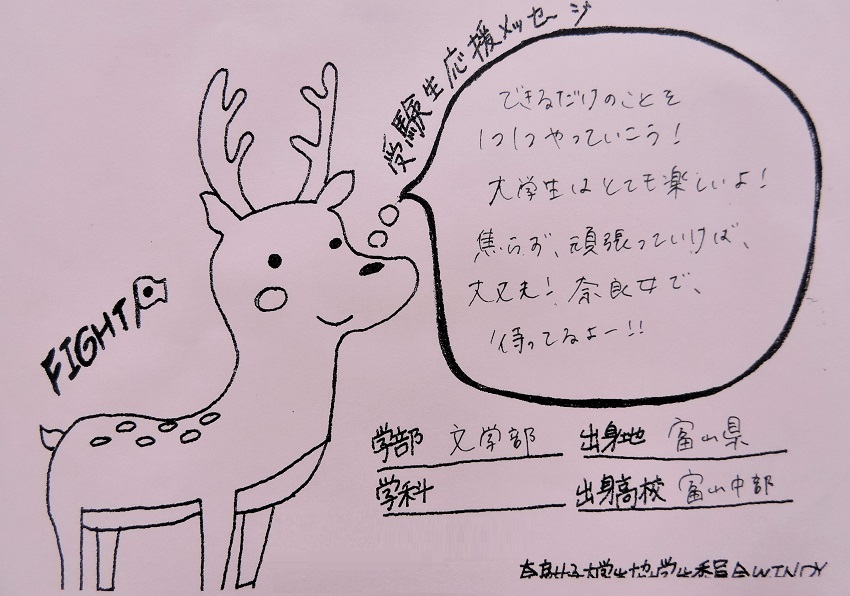 受験生応援メッセージ
できるだけのことを
1つ1つやっていこう!
大学生はとても楽しいよ!
焦らず、頑張っていけば、
大丈夫! 奈良女で、
待ってるよー!!
FIGHT
学部 文学部 出身地 富山県
学科 出身高校 富山中部
奈良女子大学生協学生委員会WINDY